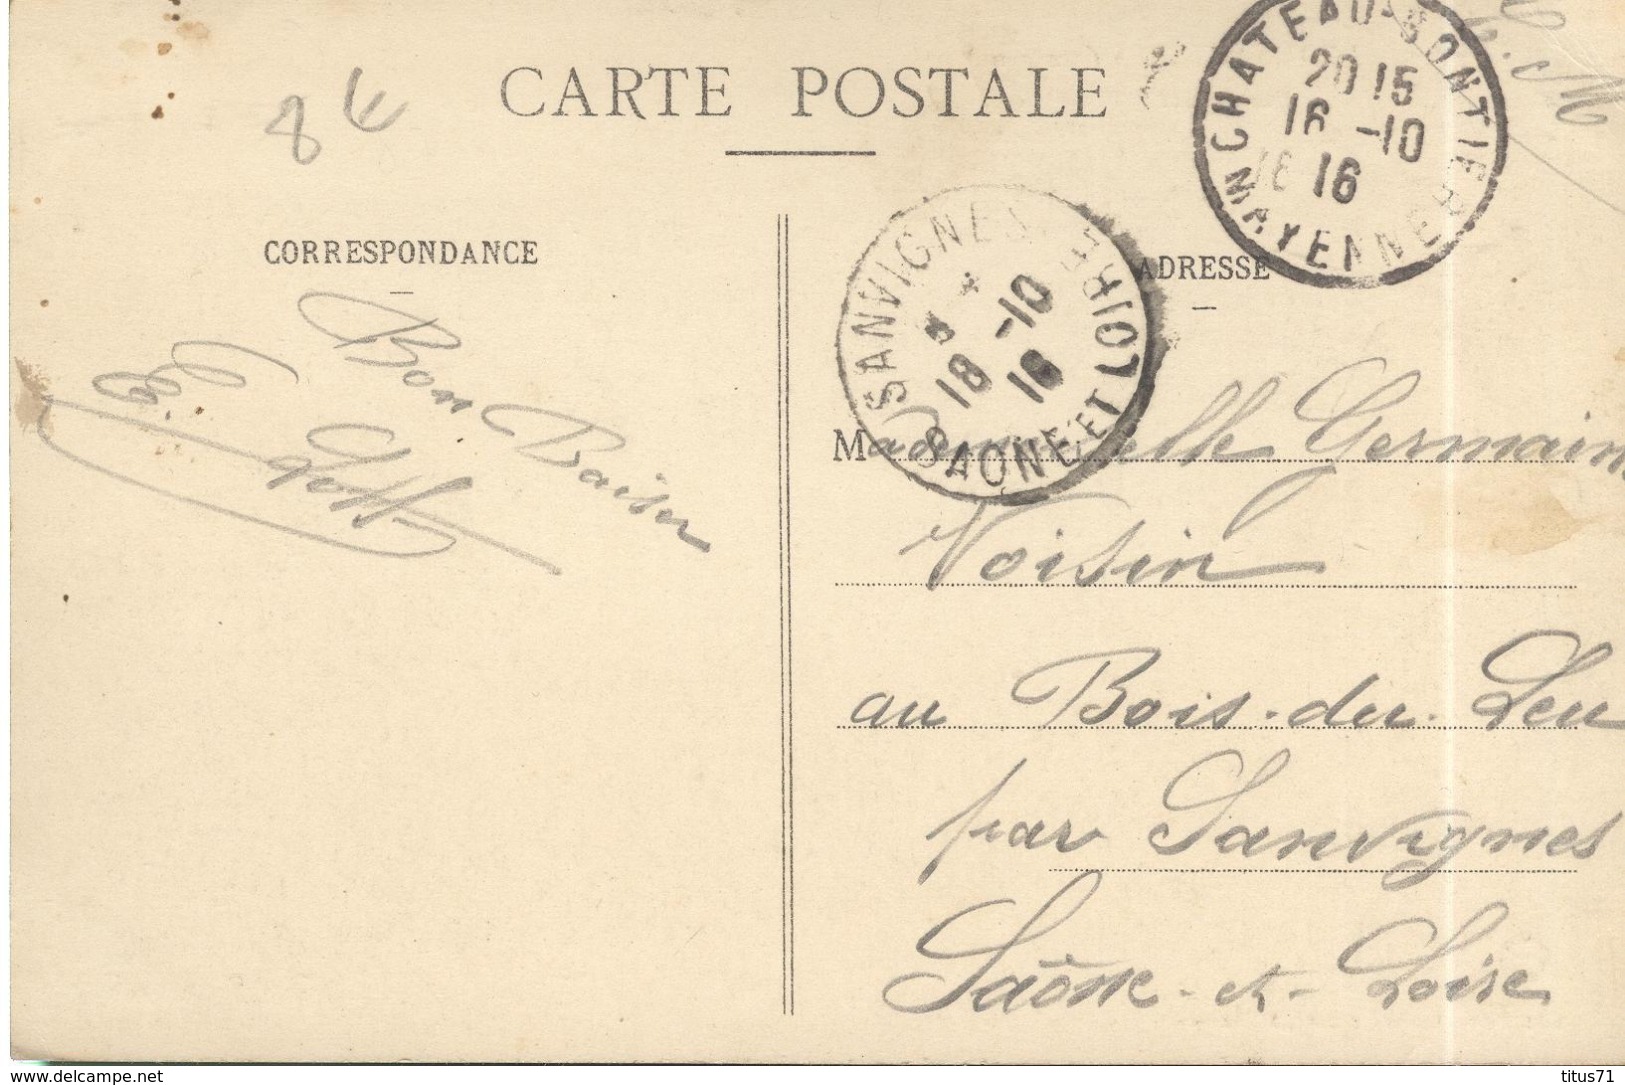 CARTE POSTALE
8 €
F. M
CHATEAU-GONTIER
20 15
16 -10
16
MAYENNE
SANVIGNES
18 -10
16
SAONE ET LOIRE
CORRESPONDANCE
ADRESSE
Bon Baiser
E.
Mademoiselle Germaine
Voisin
au Bois-du-Leu
par Sanvignes
Saône-et-Loire
www.delcampe.net
titus71